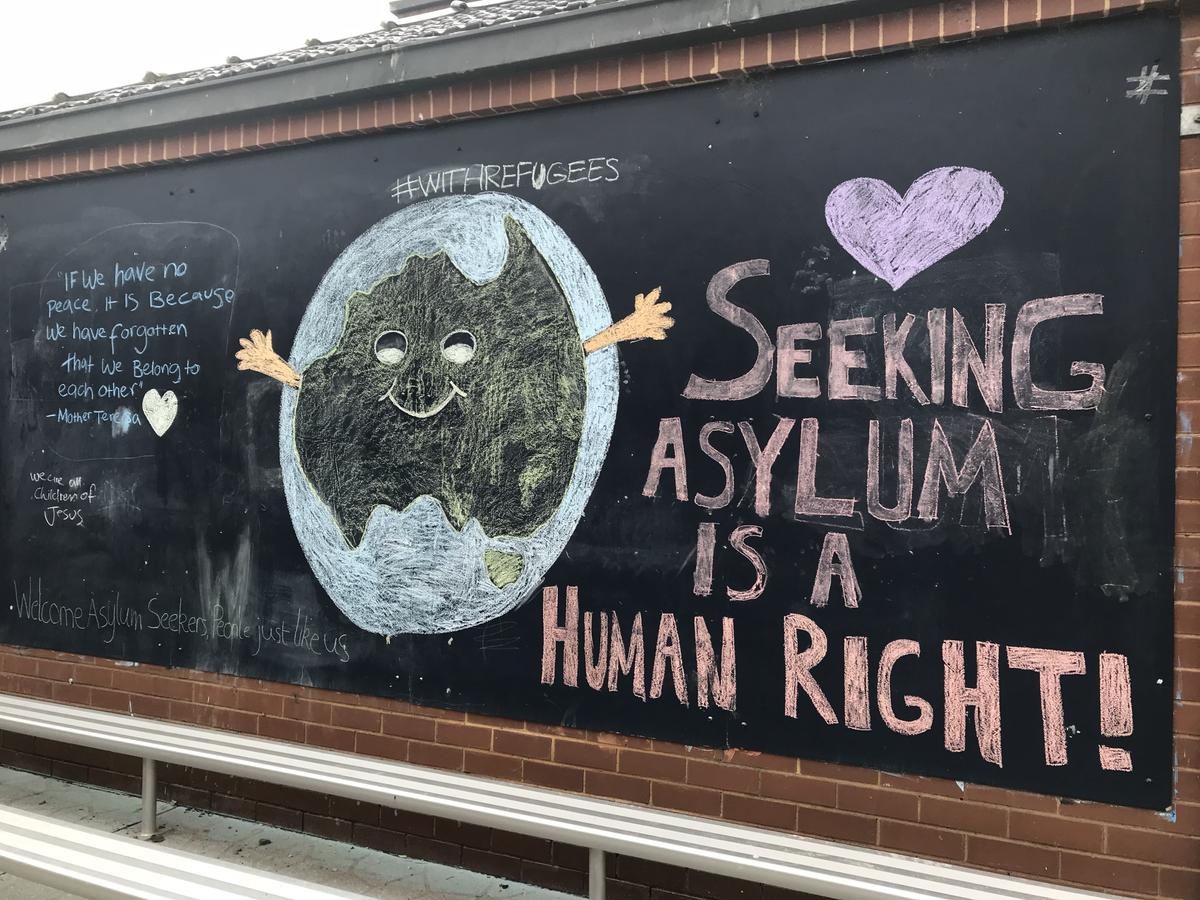 #WITHREFUGEES
"IF We have no
peace, it is Because
we have forgotten
that We Belong to
each other"
-Mother Teresa
we are all
Children of
Jesus
Welcome Asylum Seekers, People just like us,
SEEKING
ASYLUM
IS A
HUMAN RIGHT!
#